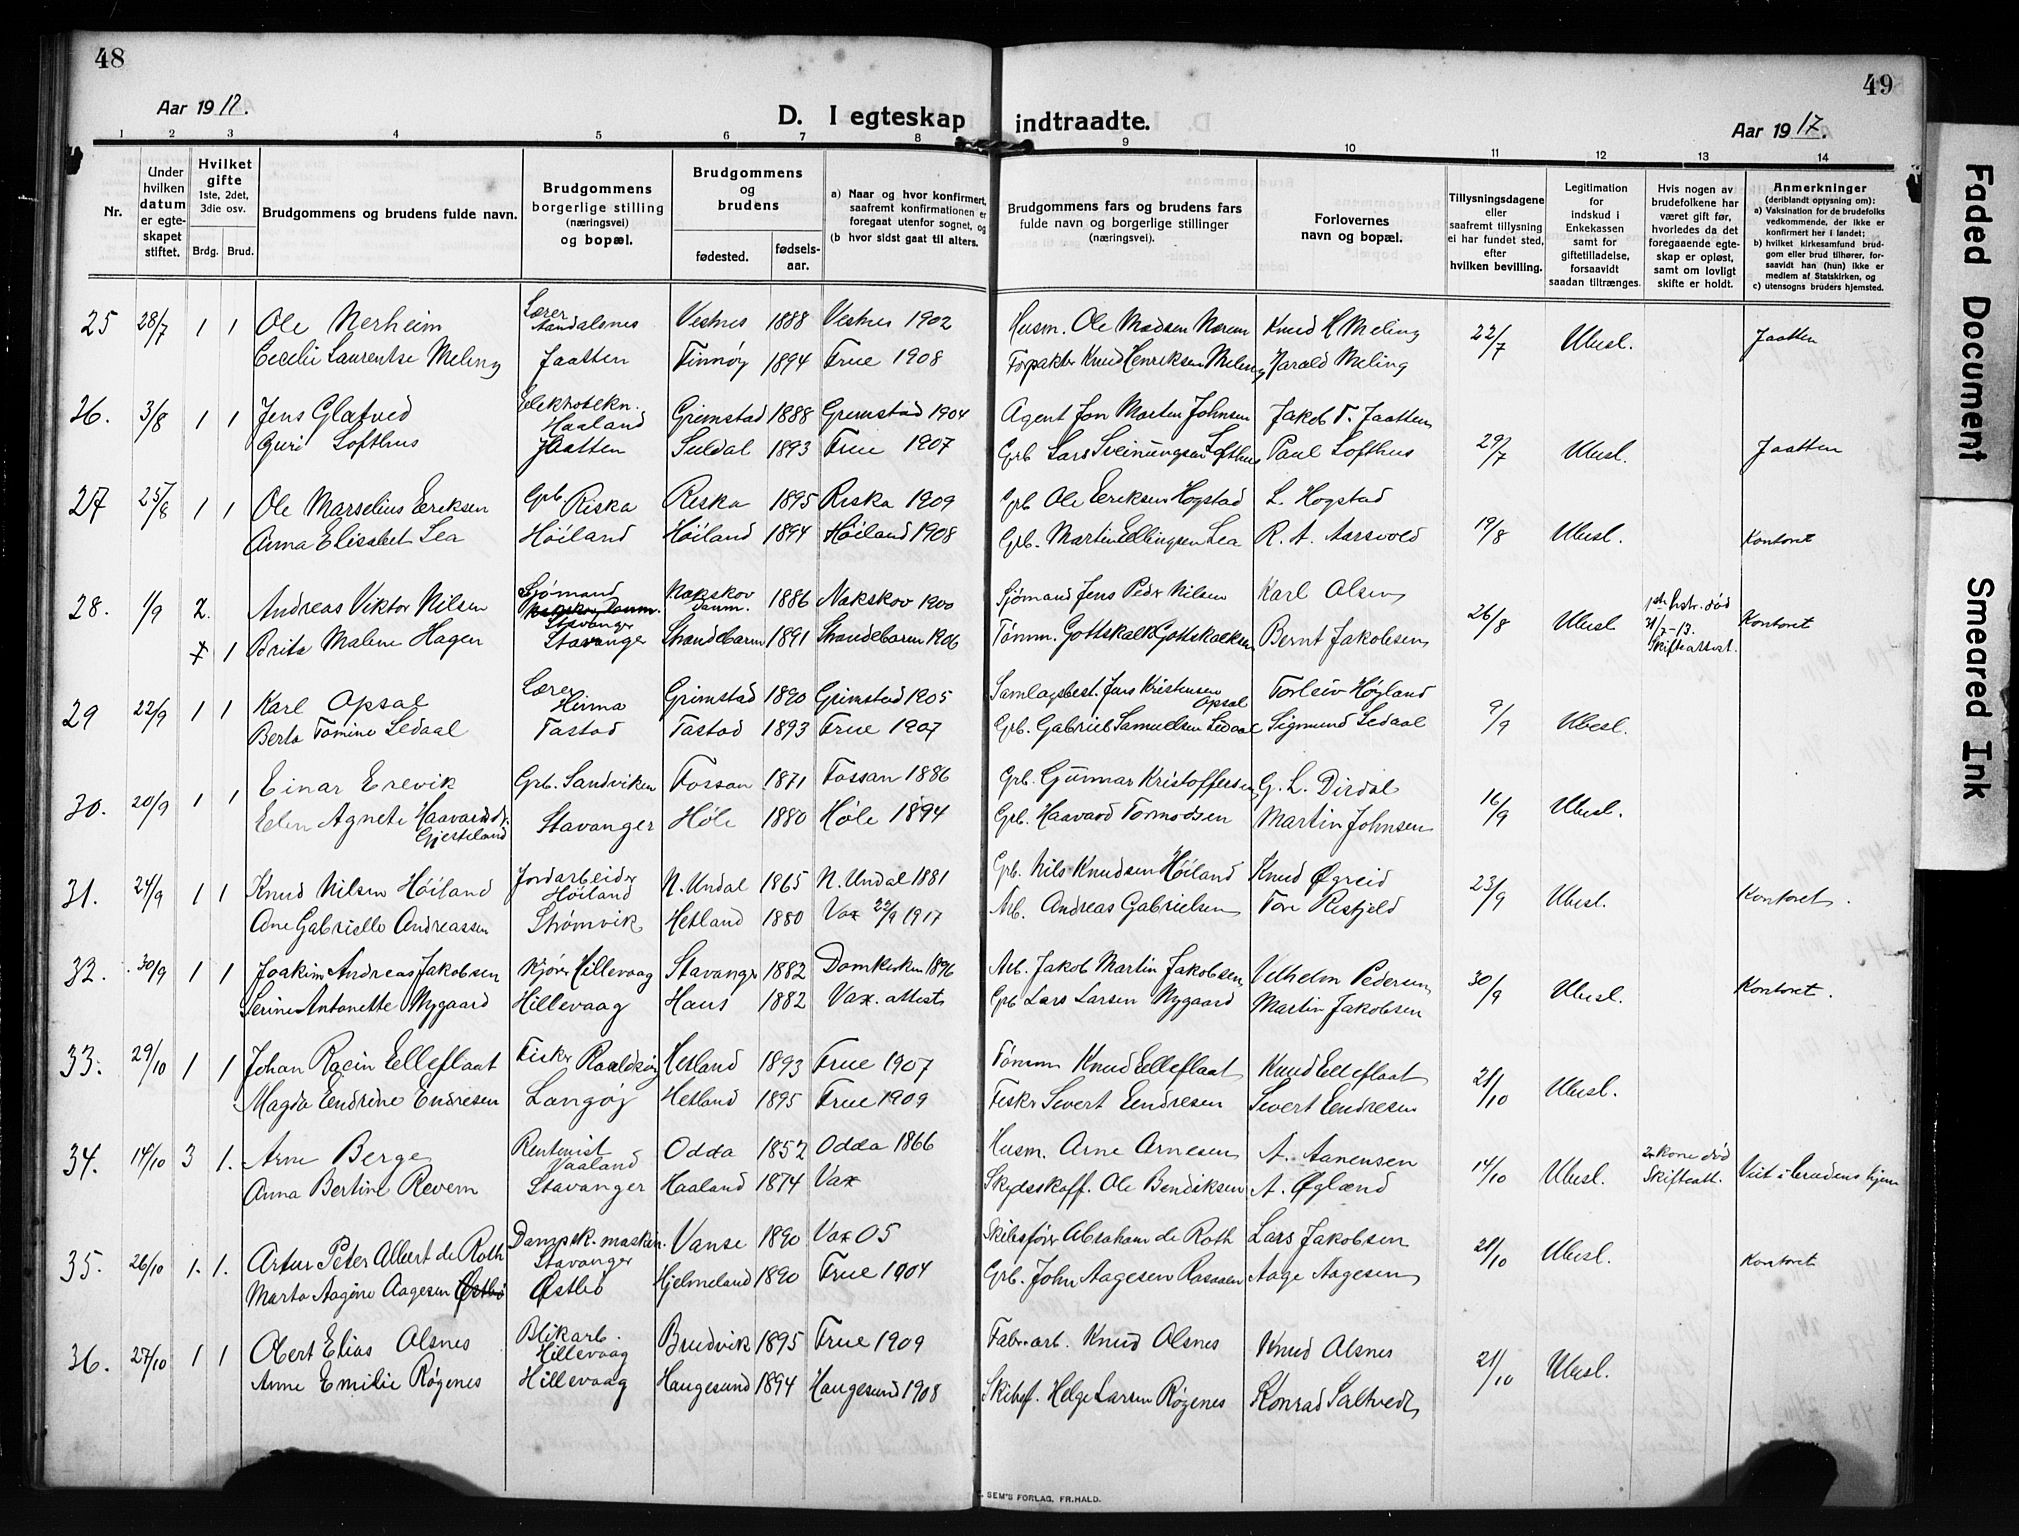 48
49
Aar 1917.
D. I egteskap indtraadte.
Aar 1917.
1 2 3 4 5 6 7 8 9 10 11 12 13 14
Nr.
Under hvilken datum er egteskapet stiftet.
Hvilket gifte 1ste, 2det, 3die osv.
Brdg. Brud.
Brudgommens og brudens fulde navn.
Brudgommens borgerlige stilling (næringsvei) og bopæl.
Brudgommens og brudens
fødested. fødsels-aar.
a) Naar og hvor konfirmert, saafremt konfirmationen er foregaat utenfor sognet, og
(b hvor sidst gaat til alters.
Brudgommens fars og brudens fars fulde navn og borgerlige stillinger (næringsvei).
Forlovernes navn og bopæl.
Tillysningsdagene eller saafremt tillysning ei har fundet sted, efter hvilken bevilling.
Legitimation for indskud i Enkekassen samt for giftetilladelse, forsaavidt saadan tiltrænges.
Hvis nogen av brudefolkene har været gift før, hvorledes da det foregaaende egteskap er opløst, samt om lovligt skifte er holdt.
Anmerkninger (deriblandt oplysning om):
a) Vaksination for de brudefolks vedkommende, der ikke er konfirmert her i landet;
b) hvilket kirkesamfund brudgom eller brud tilhører, forsaavidt han (hun) ikke er medlem af Statskirken, og
c) utensogns bruders hjemsted.
25 28/7 1 1 Ole Nerheim Lærer Aandalsnes Vestnes 1888 Vestnes 1902 Husm. Ole Madsen Nerem Knud H Meling 22/7 Ubesl. Jaatten
Cecilie Laurentse Meling Jaatten Finnøy 1894 Frue 1908 Forpakter Knud Henriksen Meling Harald Meling
26. 3/8 1 1 Jens Glatved Haaland Grimstad 1888 Grimstad 1904 Agent Jon Marten Johnsen Jakob T. Jaatten
Guri Lofthus Jaatten Suldal 1893 Frue 1907 Grb Lars Sveinungsen Lofthus Paul Lofthus 29/7 Ubesl. Jaatten
27 25/8 1 1 Ole Marselius Eriksen Grb Riska Riska 1895 Riska 1909 Grb Ole Eriksen Hogstad L. Hogstad
Anna Elisabet Lea Høiland Høiland 1894 Høiland 1908 Grb. Martin Ellingsen Lea R. A. Aarsvold 19/8 Ubesl. Kontoret
28. 1/9 2. Andreas Viktor Nilsen Sjømand Stavanger Nakskov Danm. 1886 Nakskov 1900 Sjømand Jens Peder Nilsen Karl Olsen 26/8 Ubesl 1ste hstr. død 21/7-13. Skifteattest. Kontoret
1 Brita Malene Hagen Stavanger Strandebarm 1891 Strandebarm 1906 Tømm. Gottskalk Gottskalksen Bernt Jakobsen
29 22/9 1 1 Karl Opsal Lærer Hinna Grimstad 1890 Grimstad 1905 Samlagsbest. Jens Kristensen Opsal Torleiv Høyland
Berta Tomine Ledaal Tastad Tastad 1893 Frue 1907 Grb. Gabriel Samuelsen Ledaal Sigmund Ledaal 9/9 Ubesl.
30. 20/9 1 1 Einar Erevik Grb. Sandviken Fossan 1871 Fossan 1886 Grb. Gunnar Kristoffersen G. L. Dirdal
Elen Agnete Haavardsdt. Gjerteland Stavanger Høle 1880 Høle 1894 Grb. Haavard Tormodsen Martin Johnsen 16/9 Ubesl.
31. 24/9 1 1 Knud Nilsen Høiland Jordarbeider Høiland N. Undal 1865 N. Undal 1881 Grb. Nils Knudsen Høiland Knud Øgreid 23/9 Ubesl. Kontoret.
Ane Gabrielle Andreassen Strømvik Hetland 1880 Vax 22/9 1917 Arb. Andreas Gabrielsen Tore Riskjeld
32. 30/9 1 1 Joakim Andreas Jakobsen Kjører Hillevaag Stavanger 1882 Domkirken 1896 Arb. Jakob Martin Jakobsen Vilhelm Pedersen 30/9 Ubesl. Kontoret.
Serine Antonette Nygaard Hillevaag Haus 1882 Vax. attest Grb Lars Larsen Nygaard Martin Jakobsen
33. 29/10 1 1 Johan Ragin Elleflaat Fisker Roaldsøy Hetland 1893 Frue 1907 Tømm Knud Elleflaat Knud Elleflaat 21/10 Ubesl.
Magda Endrine Endresen Langøy Hetland 1895 Frue 1909 Fisker Sivert Endresen Sivert Endresen
34. 14/10 3 1. Arne Berge Rentenist Vaaland Odda 1852 Odda 1866 Husm. Arne Arnesen A. Aanensen 14/10 Ubesl. 2n kone død Skifteatt. Viet i brudens hjem
Anna Bertine Revem Stavanger Haaland 1874 Vax Skydsskaff. Ole Bendiksen A. Øglænd
35. 26/10 1. 1. Artur Peter Albert de Roth Dampsk. maskin. Stavanger Vanse 1890 Vax 05 Skibsfører Abraham de Roth Lars Jakobsen 21/10 Ubesl. Kontoret
Marta Aagine Aagesen Østbø Østbø Hjelmeland 1890 Frue 1904 Grb. John Aagesen Rasaaen Aage Aagesen
36. 27/10 1 1 Obert Elias Alsnes Blikarb. Hillevaag Brudvik 1895 Frue 1909 Fabr.arb. Knud Alsnes Knud Alsnes 21/10 Ubesl.
Anne Emilie Røgenes Hillevaag Haugesund 1894 Haugesund 1908 Skibsf. Helge Larsen Røgenes Konrad Saltvedt
SEM'S FORLAG, FR.HALD.
Faded Document
Smeared Ink